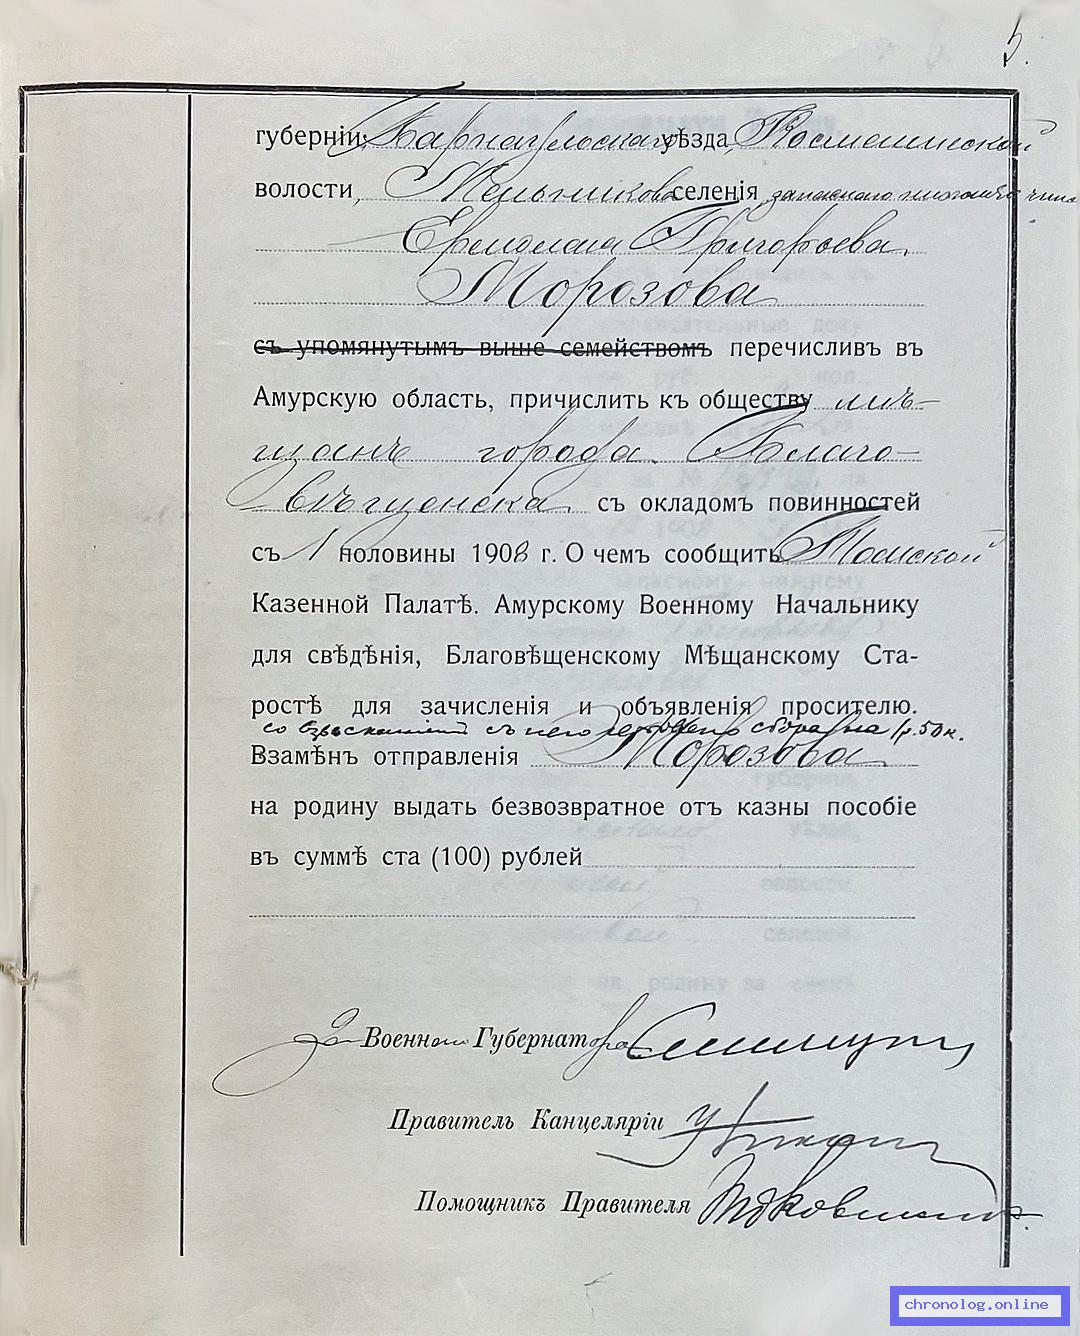 5.
губерніи, Барнаульскаго уѣзда, Космалинской
волости, Мельникова селенія запаснаго нижняго чина
Ермолая Григорьева
Морозова
съ упомянутымъ выше семействомъ перечисливъ въ
Амурскую область, причислить къ обществу мѣ-
щанъ города Благо-
вѣщенска съ окладомъ повинностей
съ 1 половины 1908 г. О чемъ сообщить Томской
Казенной Палатѣ. Амурскому Военному Начальнику
для свѣдѣнія, Благовѣщенскому Мѣщанскому Ста-
ростѣ для зачисленія и объявленія просителю.
со взысканіемъ съ него гербоваго сбора на 1 р. 50 к.
Взамѣнъ отправленія Морозова
на родину выдать безвозвратное отъ казны пособіе
въ суммѣ ста (100) рублей
За Военнаго Губернатора
Правитель Канцеляріи
Помощникъ Правителя
chronolog.online